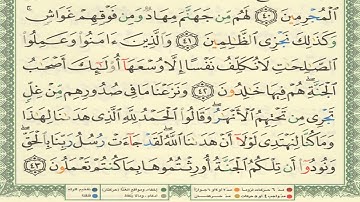 ٱلْمُجْرِمِينَ ٤٠ لَهُم مِّن جَهَنَّمَ مِهَادٌ وَمِن فَوْقِهِمْ غَوَاشٍ ۚ
وَكَذَٰلِكَ نَجْزِى ٱلظَّٰلِمِينَ ٤١ وَٱلَّذِينَ ءَامَنُوا۟ وَعَمِلُوا۟
ٱلصَّٰلِحَٰتِ لَا نُكَلِّفُ نَفْسًا إِلَّا وُسْعَهَآ أُو۟لَٰٓئِكَ أَصْحَٰبُ
ٱلْجَنَّةِ ۖ هُمْ فِيهَا خَٰلِدُونَ ٤٢ وَنَزَعْنَا مَا فِى صُدُورِهِم مِّنْ غِلٍّ
تَجْرِى مِن تَحْتِهِمُ ٱلْأَنْهَٰرُ ۖ وَقَالُوا۟ ٱلْحَمْدُ لِلَّهِ ٱلَّذِى هَدَىٰنَا لِهَٰذَا
وَمَا كُنَّا لِنَهْتَدِىَ لَوْلَآ أَنْ هَدَىٰنَا ٱللَّهُ ۖ لَقَدْ جَآءَتْ رُسُلُ رَبِّنَا بِٱلْحَقِّ ۖ
وَنُودُوٓا۟ أَن تِلْكُمُ ٱلْجَنَّةُ أُورِثْتُمُوهَا بِمَا كُنتُمْ تَعْمَلُونَ ٤٣